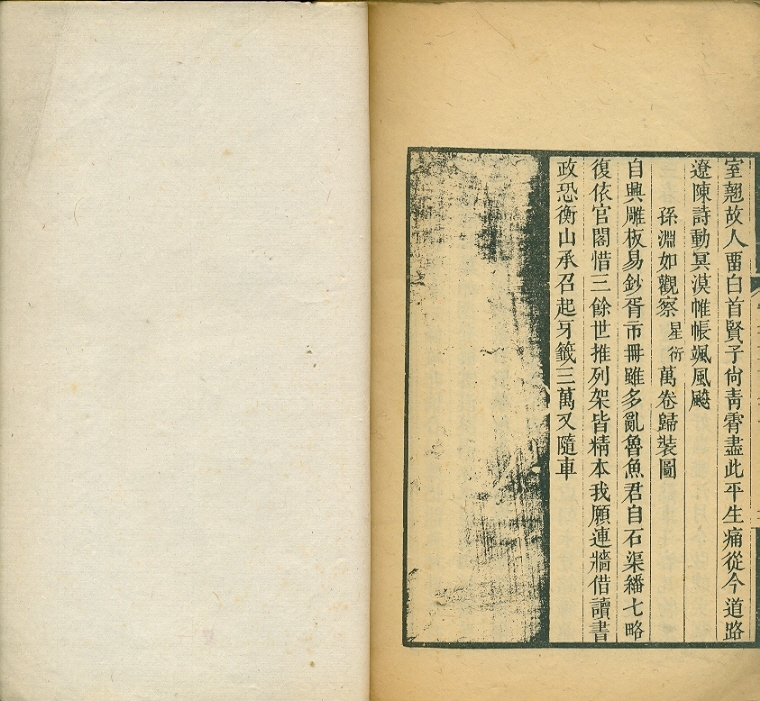 室翹故人畱白首賢子尙靑霄盡此平生痛從今道路
遼陳詩動冥漠帷帳颯風飈
孫淵如觀察星衍萬卷歸裝圖
自興雕板易鈔胥市冊雖多亂魯魚君自石渠繙七略
復依官閣惜三餘世推列架皆精本我願連牆借讀書
政恐衡山承召起牙籤三萬又隨車